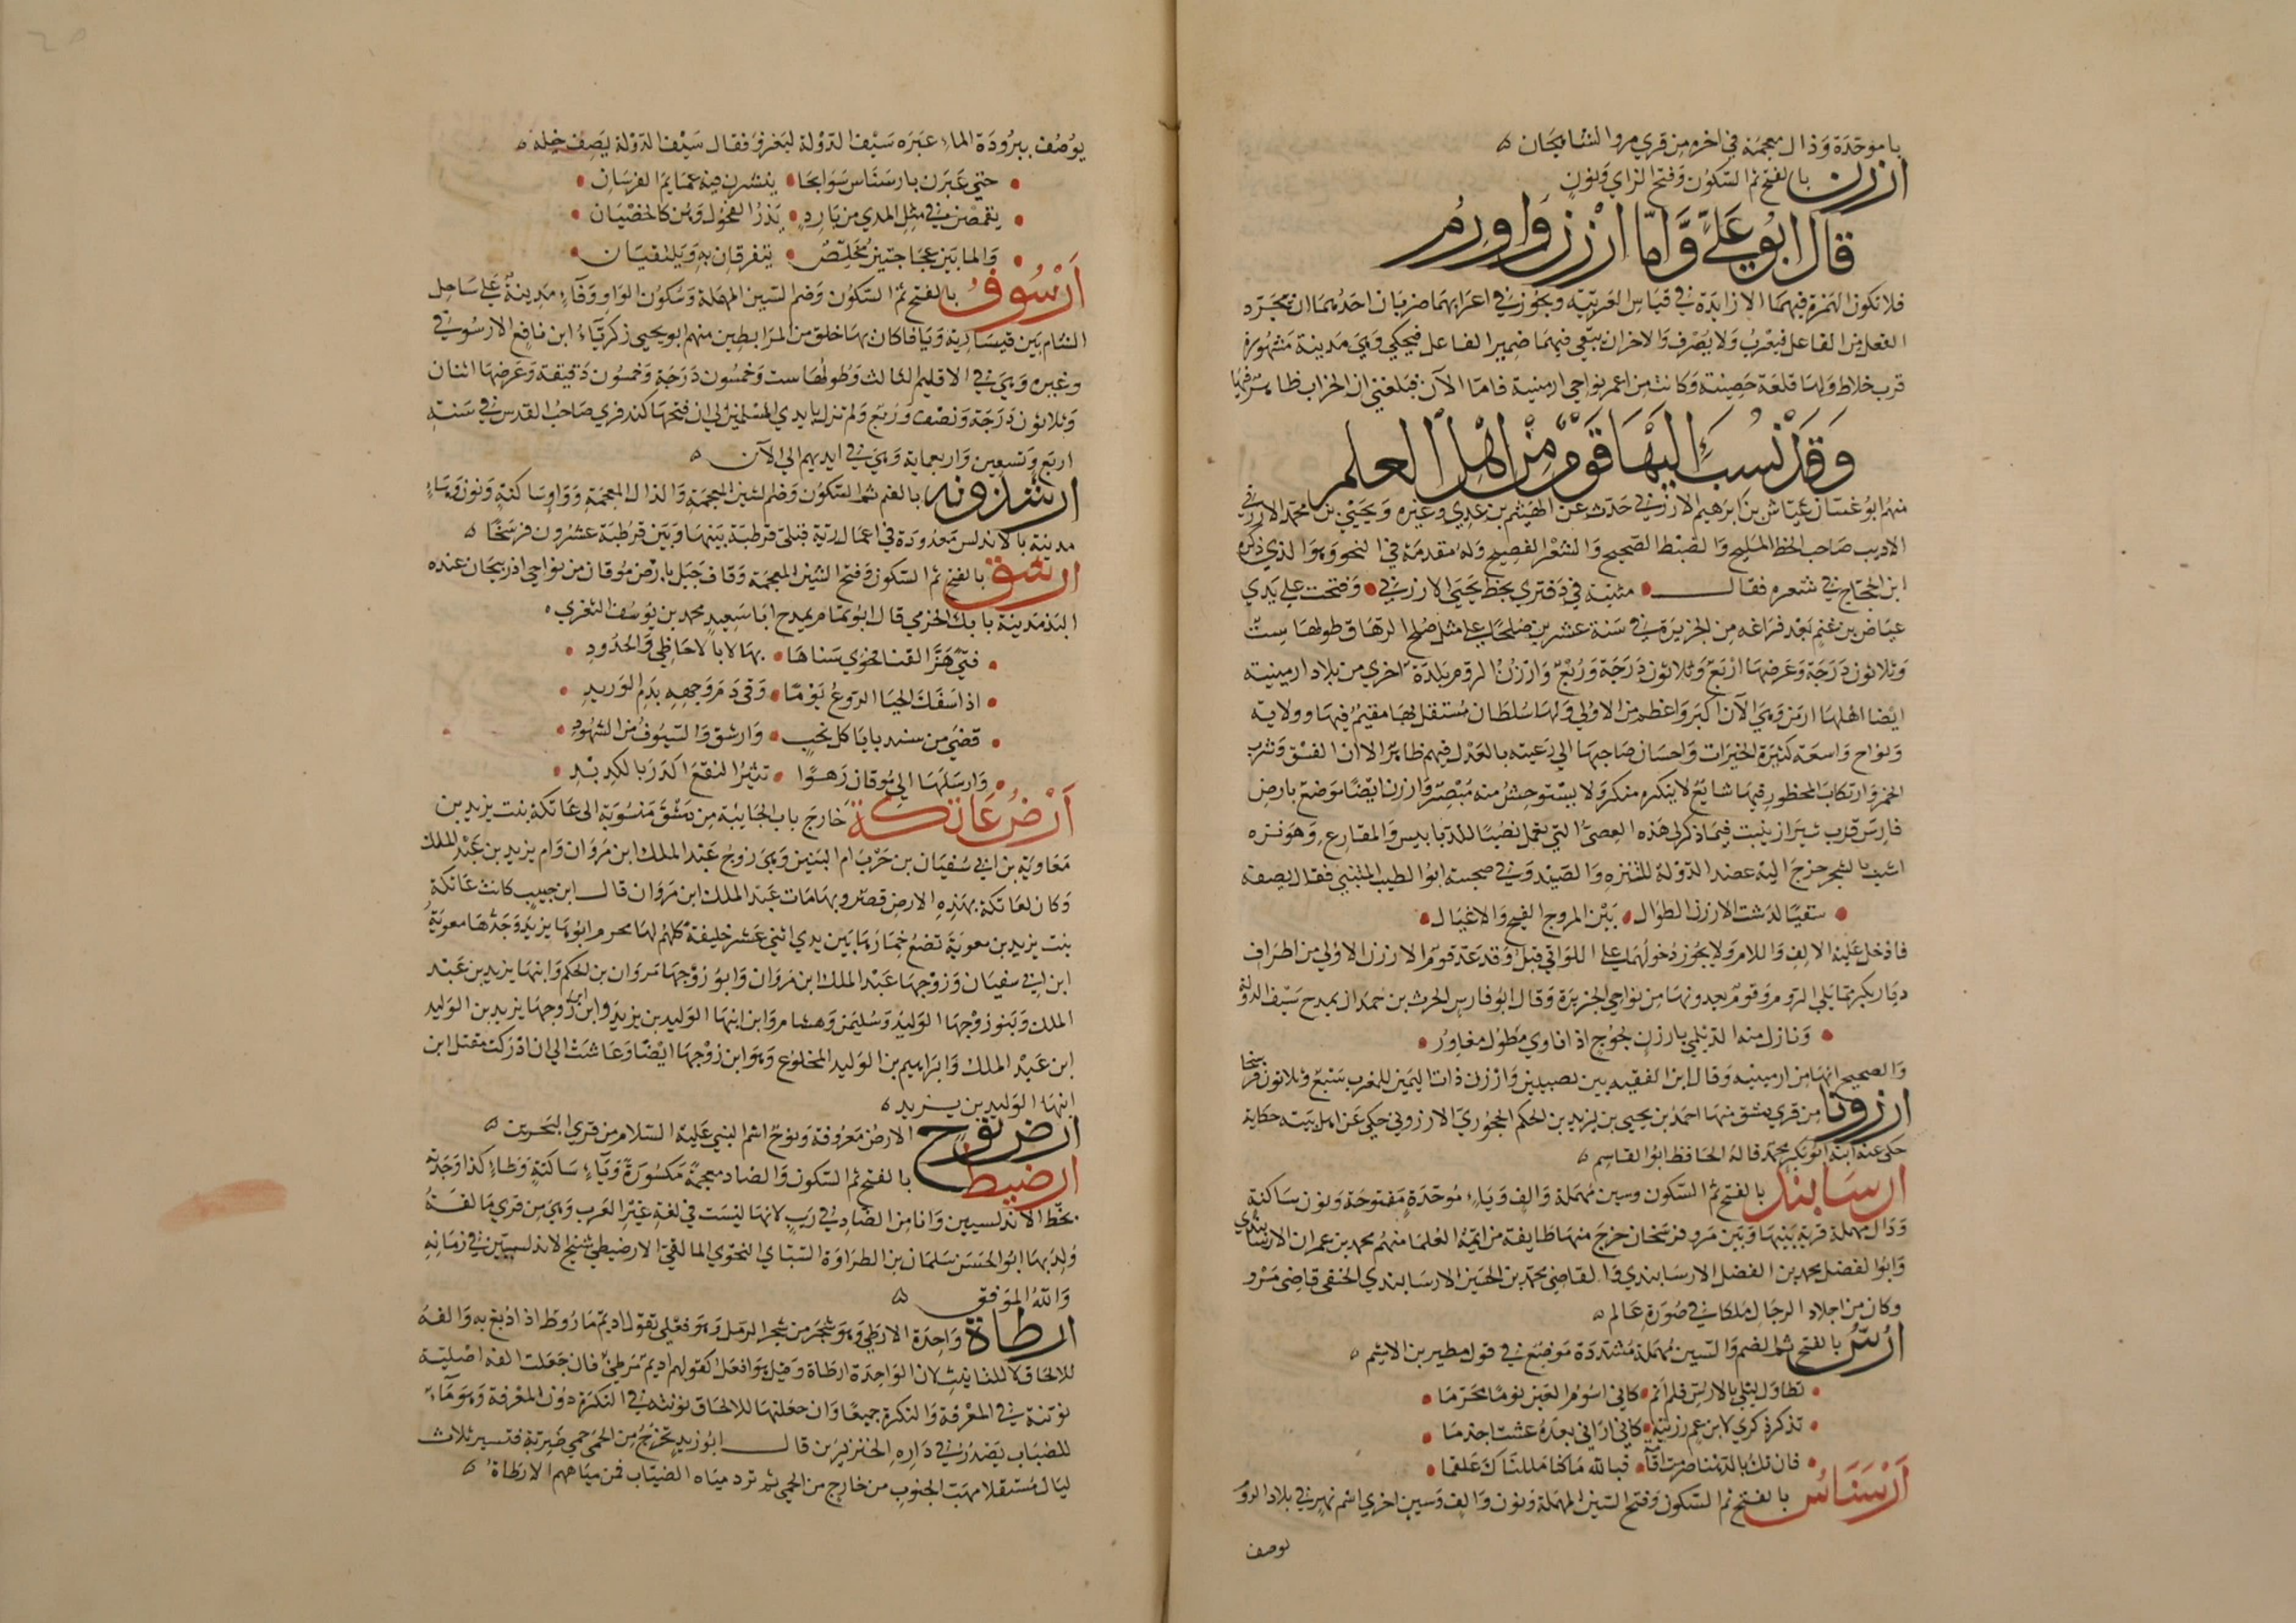 با موحدة وذال معجمة في اخره من قري مرو الشاهجان ه
ارزن بالفتح ثم السكون وفتح الزاي ونون
قال ابو علي واما ارزن واورم
فلا تكون الهمزة فيهما الا زايدة في قياس العربية ويجوز في اعرابهما ضربان احدهما ان تجرد
الفعل من الفاعل فيعرب ولا يصرف والاخر ان يبقي فيهما ضمير الفاعل فيحكي وهي مدينة مشهورة
قرب خلاط ولها قلعة حصينة وكانت من اعمر نواحي ارمينية فاما الآن فبلغني ان الخراب ظاهر فيها
وقد نسب اليها قوم من اهل العلم
منهم ابو غسان عياش بن ابرهيم الارزني حدث عن الهيثم بن عدي وغيره ويحيي بن محمد الارزني
الاديب صاحب الخط المليح والضبط الصحيح والشعر الفصيح وله مقدمة في النحو وهو الذي ذكره
ابن الحجاج في شعره فقال • مثبتة في دفتري بخط يحيي الارزني • وفتحت علي يدي
عياض بن غنم بعد فراغه من الجزيرة في سنة عشرين صلحا علي مثل صلح الرها وطولها ست
وثلاثون درجة وعرضها اربع وثلاثون درجة وربع وارزن الروم بلدة اخري من بلاد ارمينية
ايضا اهلها ارمن وهي الآن اكبر واعظم من الاولي ولها سلطان مستقل بها مقيم فيها وولاية
ونواح واسعة كثيرة الخيرات واحسان صاحبها الي رعيته بالعدل فيهم ظاهر الا ان الفسق وشرب
الخمر وارتكاب المحظور فيها شايع لا ينكره منكر ولا يستوحش منه مبصر وارزن ايضا موضع بارض
فارس قرب شيراز ينبت فيما ذكر لي هذه العصي التي تعمل نصبا للدبابيس والمقارع وهو نزه
اشب بالشجر خرج اليه عضد الدولة للتنزه والصيد وفي صحبته ابو الطيب المتنبي فقال يصفه
• سقيا لدشت الارزن الطوال • بين المروج الفيح والاغيال •
فادخل عليه الالف واللام ولا يجوز دخولهما علي اللواتي قبل وقد عد قوم الارزن الاولي من اطراف
ديار بكر مما يلي الروم وقوم يعدونها من نواحي الجزيرة وقال ابو فارس الحرث بن حمدان يمدح سيف الدولة
• ونازل منه الديلمي بارزن لجوج اذا ناوي مطول مغاور •
والصحيح انها من ارمينية وقال ابن الفقيه بين نصيبين وارزن ذات اليمين للمغرب سبع وثلاثون فرسخا
ارزونا من قري دمشق منها احمد بن يحيي بن يزيد بن الحكم الحجوري الارزوني حكي عن اهل بيته حكاية
حكي عنه ابنه ابو بكر محمد قاله الحافظ ابو القاسم ه
ارسابند بالفتح ثم السكون وسين مهملة والف وباء موحدة مفتوحة ونون ساكنة
ودال مهملة قرية بينها وبين مرو فرسخان خرج منها طايفة من ايمة العلما منهم محمد بن عمران الارسابندي
وابو الفضل محمد بن الفضل الارسابندي والقاضي محمد بن الحسين الارسابندي الحنفي قاضي مرو
وكان من اجلاد الرجال ملكا في صورة عالم ه
ارس بالفتح ثم الضم والسين مهملة مشددة موضع في قول مطير بن الاشيم ه
• تطاول ليلي بالارس فلم انم • كاني اسوم العين نوما محرما •
• تذكر ذكري لابن عم رزيته • كاني اراني بعده عشت اجذما •
• فان تك بالدهنا صرمت اقامة • فبالله ما كنا مللناك علقما •
ارسناس بالفتح ثم السكون وفتح السين المهملة ونون والف وسين اخري اسم نهر في بلاد الروم
يوصف
يوصف ببرودة الماء عبره سيف الدولة ليغزو فقال سيف الدولة يصف خيله ه
• حتي عبرن بارسناس سوابحا • ينشرن فيه عمايم الفرسان •
• يقمصن في مثل المدي من بارد • يذر الفحول وهن كالخصيان •
• والما بين عجاجتين مخلص • تتفرقان به ويلتقيان •
ارسوف بالفتح ثم السكون وضم السين المهملة وسكون الواو وفاء مدينة علي ساحل
الشام بين قيسارية ويافا كان بها خلق من المرابطين منهم ابو يحيي زكرياء ابن نافع الارسوفي
وغيره وهي في الاقليم الثالث وطولها ست وخمسون درجة وخمسون دقيقة وعرضها اثنان
وثلاثون درجة ونصف وربع ولم تزل بايدي المسلمين الي ان فتحها كندفري صاحب القدس في سنة
اربع وتسعين واربعماية وهي في ايديهم الي الآن ه
ارشذونه بالضم ثم السكون وضم الشين المعجمة والذال المعجمة وواو ساكنة ونون وهاء
مدينة بالاندلس معدودة في اعمال رية قبلي قرطبة بينها وبين قرطبة عشرون فرسخا ه
ارشق بالفتح ثم السكون وفتح الشين المعجمة وقاف جبل بارض موقان من نواحي اذربيجان عنده
البذ مدينة بابك الخرمي قال ابو تمام يمدح ابا سعيد محمد بن يوسف الثغري ه
• فتي هز القنا فحوي سناها • بها لا بالاحاظي والجدود •
• اذا سفك الحيا الروع يوما • وقي دم وجهه بدم الوريد •
• قضي من سندبايا كل نحب • وارشق والسيوف من الشهود •
• وارسلها الي موقان رهوا • تثير النقع اكدر بالكديد •
ارض عاتكة خارج باب الجابية من دمشق منسوبة الي عاتكة بنت يزيد بن
معاوية بن ابي سفيان بن حرب ام البنين وهي زوج عبد الملك ابن مروان وام يزيد بن عبد الملك
وكان لعاتكة بهذه الارض قصر وبها مات عبد الملك ابن مروان قال ابن حبيب كانت عاتكة
بنت يزيد بن معوية تضع خمارها بين يدي اثني عشر خليفة كلهم لها محرم ابوها يزيد وجدها معوية
ابن ابي سفيان وزوجها عبد الملك ابن مروان وابو زوجها مروان بن الحكم وابنها يزيد بن عبد
الملك وبنو زوجها الوليد وسليمن وهشام وابن ابنها الوليد بن يزيد وابن ابن زوجها يزيد بن الوليد
ابن عبد الملك وابراهيم بن الوليد المخلوع وهو ابن زوجها ايضا وعاشت الي ان ادركت مقتل ابن
ابنها الوليد بن يزيد ه
ارض نوح الارض معروفة ونوح اسم النبي عليه السلام من قري البحرين ه
ارضيط بالفتح ثم السكون والضاد معجمة مكسورة وياء ساكنة وطاء كذا وجدته
بخط الاندلسيين وانا من الضاد في ريب لانها ليست في لغة غير العرب وهي من قري مالقة
ولد بها ابو الحسن سلمان بن الطراوة السباي النحوي المالقي الارضيطي شيخ الاندلسيين في زمانه
والله الموفق ه
ارطاة واحدة الارطي وهو شجر من شجر الرمل وهو فعلي تقول اديم ماروط اذا دبغ به والفه
للالحاق لا للتانيث لان الواحدة ارطاة وقيل هو افعل لقولهم اديم مرطي فان جعلت الفه اصلية
نونته في المعرفة والنكرة جميعا وان جعلتها للالحاق نونته في النكرة دون المعرفة وهو ماء
للضباب يصدر في دارة الخنزيرين قال ابو زيد تخرج من الحمي حمي ضرية فتسير ثلاث
ليال مستقبلا مهب الجنوب من خارج من الحمي ثم ترد مياه الضباب فمن مياههم الارطاة ه